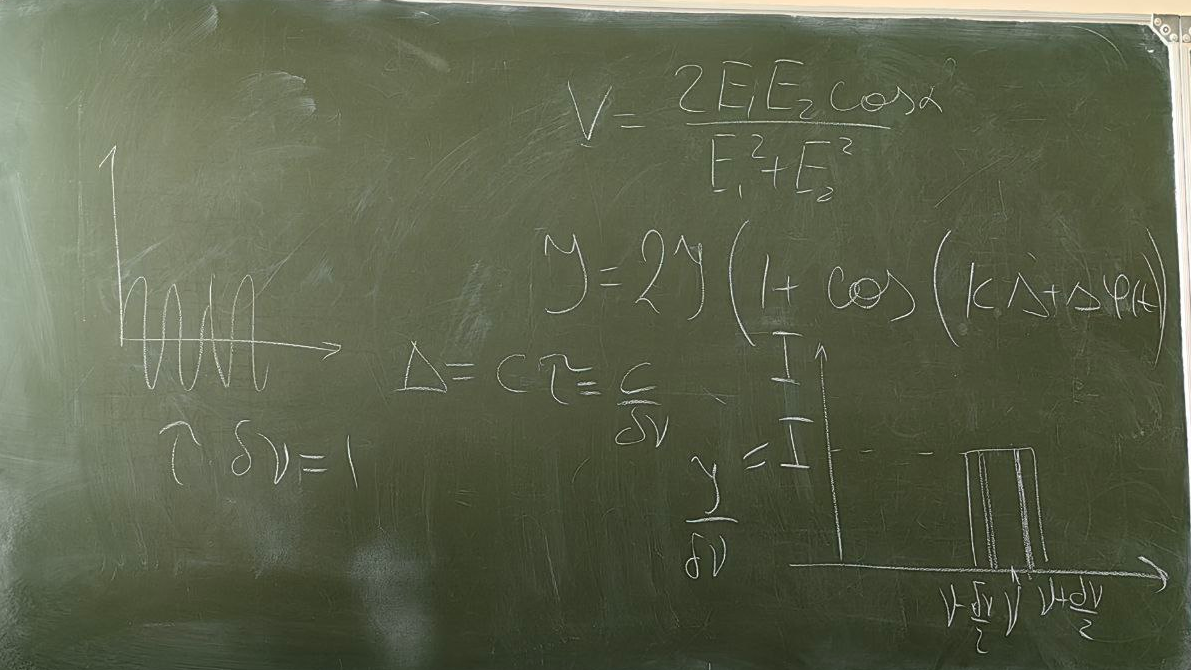 V = 2E₁E₂cosα / E₁²+E₂²
Y = 2Y (1 + cos (kΔ+Δφ(t))
Δ = cτ = c/δν
τ · δν = 1
I
Y/δν = I
ν-δν/2 ν ν+δν/2